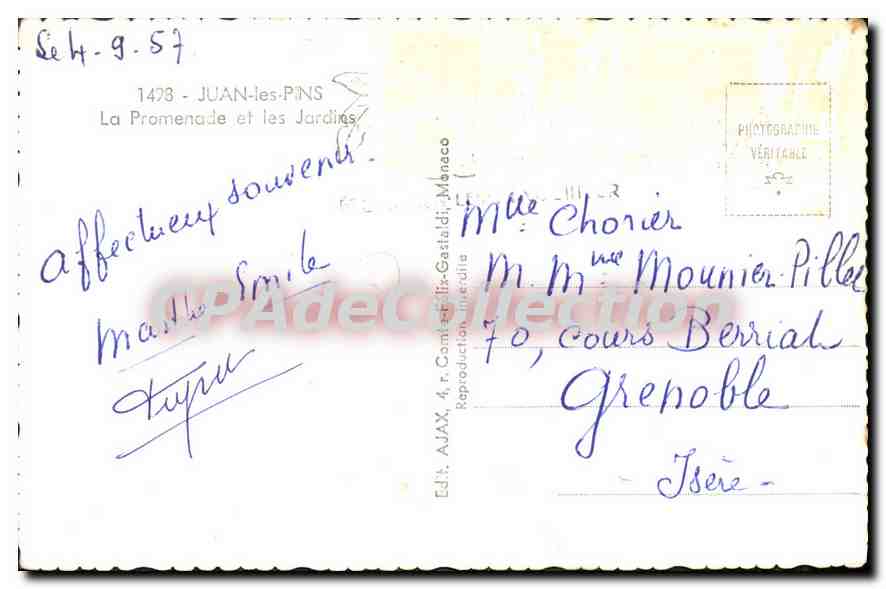 Le 4-9-57
1498 - JUAN-les-PINS
La Promenade et les Jardins
Affectueux souvenir.
Marthe Emile
Edit. AJAX, 4, r. Comte-Félix-Gastaldi, Monaco
Reproduction interdite
PHOTOGRAPHIE
VÉRITABLE
Mlle Chorier
M. Mme Mounier-Pillet
70, cours Berriat
Grenoble
- Isère -
CPAdeCollection